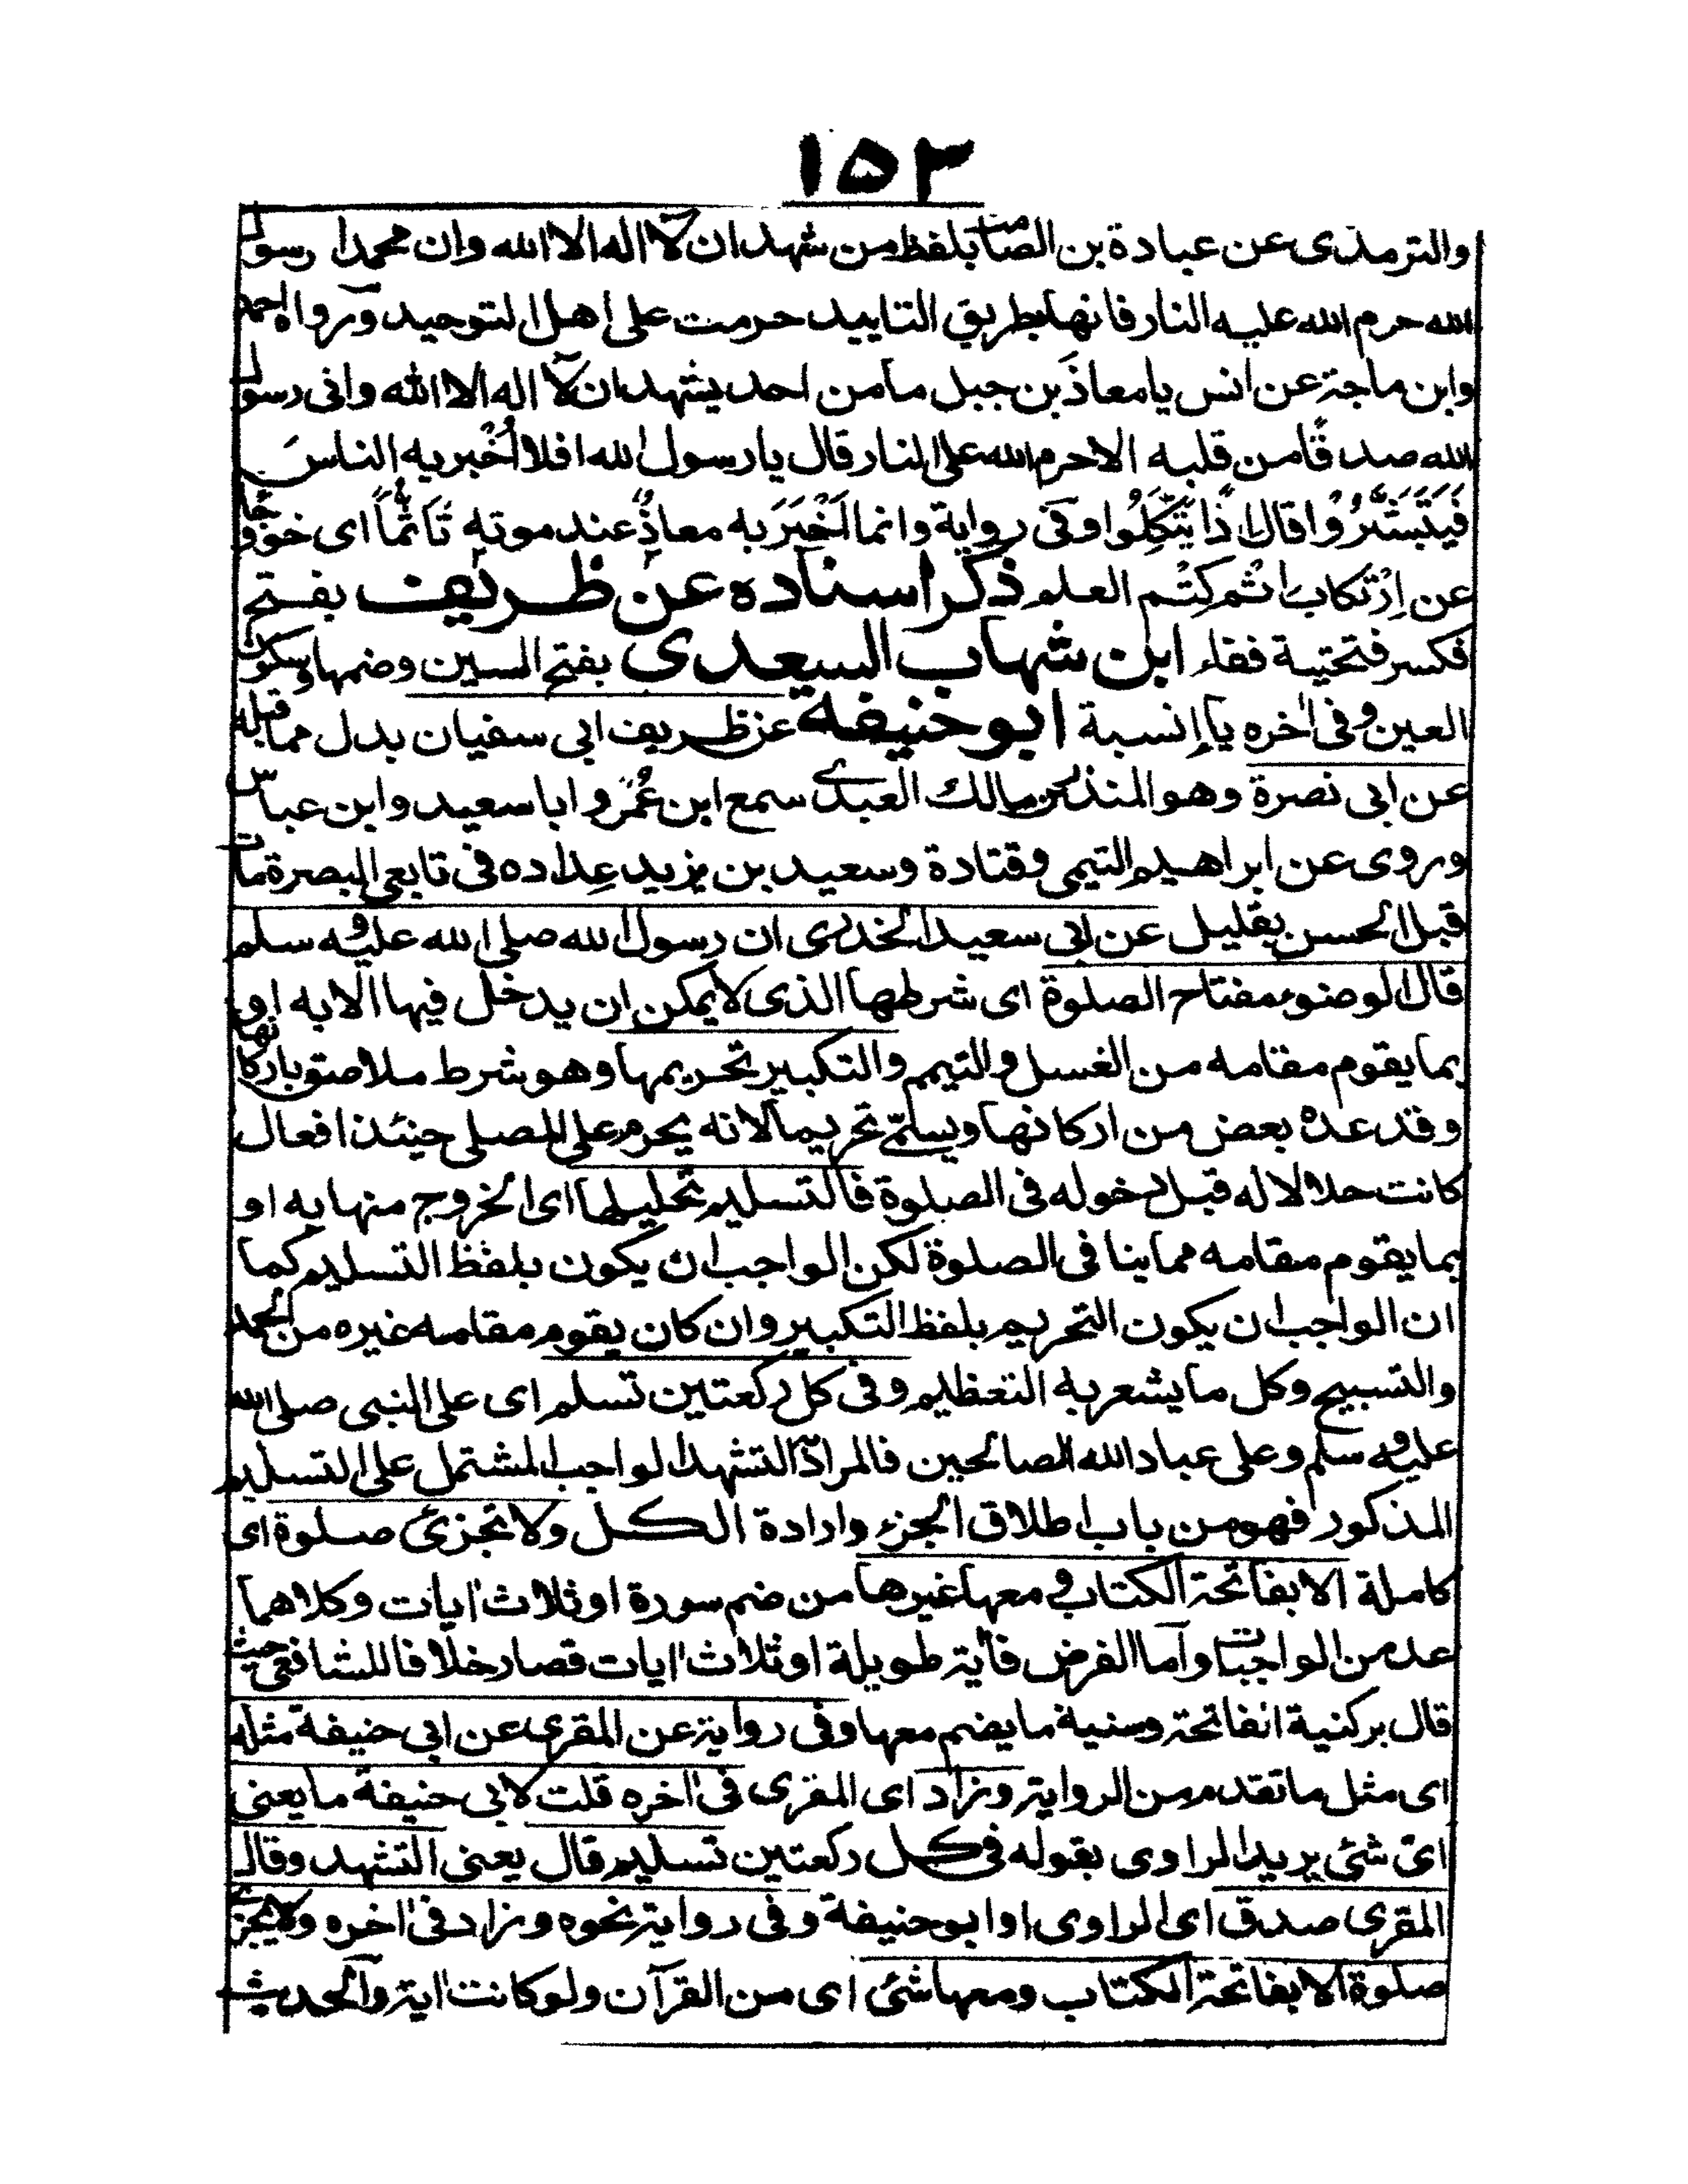 ١٥٣
والترمذى عن عبادة بن الصامت بلفظ من شهد ان لا اله الا الله وان محمدا رسول
الله حرم الله عليه النار فانها بطريق التابيد حرمت على اهل التوحيد ورواه احمد
وابن ماجة عن انس يا معاذ بن جبل ما من احد يشهد ان لا اله الا الله وانى رسول
الله صدقًا من قلبه الا حرم الله على النار قال يا رسول الله افلا اُخْبر به الناسَ
فَيَسْتَبْشِرُوْا قال اذًا يَتَّكِلُوا وفى رواية وانما اَخْبَرَ به معاذٌ عند موته تَأثُّمًا اى خوفا
عن اِرْتكاب اثم كَتْم العلم ذكر اسناده عن ظريف بفتح
فكسر فتحتية ففاء ابن شهاب السعدى بفتح السين وضمها وسكون
العين وفى اٰخره ياء نسبة ابو حنيفة عن ظريف ابى سفيان بدل مما قبله
عن ابى نضرة وهو المنذر بن مالك العبدى سمع ابن عُمَر و ابا سعيد وابن عباس
وروى عن ابراهيم التيمى وقتادة وسعيد بن يزيد عِداده فى تابعى البصرة مات
قبل الحسن بقليل عن ابى سعيد الخدرى ان رسول الله صلى الله عليه وسلم
قال الوضوء مفتاح الصلوة اى شرطها الذى لا يمكن ان يدخل فيها الا به او
بما يقوم مقامه من الغسل والتيمم والتكبير تحريمها وهو شرط ملاصق باركانها
وقد عده بعض من اركانها ويسمّى تحريما لانه يحرم على المصلى حينئذ افعال
كانت حلالا له قبل دخوله فى الصلوة فالتسليم تحليلها اى الخروج منها به او
بما يقوم مقامه مما ينا فى الصلوة لكن الواجب ان يكون بلفظ التسليم كما
ان الواجب ان يكون التحريم بلفظ التكبير وان كان يقوم مقامه غيره من الحمد
والتسبيح وكل ما يشعر به التعظيم وفى كل ركعتين تسلم اى على النبى صلى الله
عليه وسلم وعلى عباد الله الصالحين فالمراد التشهد الواجب المشتمل على التسليم
المذكور فهو من باب اطلاق الجزء وارادة الكل ولا تجزئ صلوة اى
كاملة الا بفاتحة الكتاب ومعها غيرها من ضم سورة او ثلاث اٰيات وكلاهما
عد من الواجبات واما الفرض فاٰية طويلة او ثلاث اٰيات قصار خلافا للشافعى حيث
قال بركنية الفاتحة وسنية ما يضم معها وفى رواية عن المقرى عن ابى حنيفة مثله
اى مثل ما تقدم من الرواية وزاد اى المقرى فى اٰخره قلت لابى حنيفة ما يعنى
اىّ شئ يريد الراوى بقوله فى كل ركعتين تسليم قال يعنى التشهد وقال
المقرى صدق اى الراوى او ابو حنيفة وفى رواية نحوه وزاد فى اٰخره ولا يجزئ
صلوة الا بفاتحة الكتاب ومعها شئ اى من القرآن ولو كانت اٰية والحديث